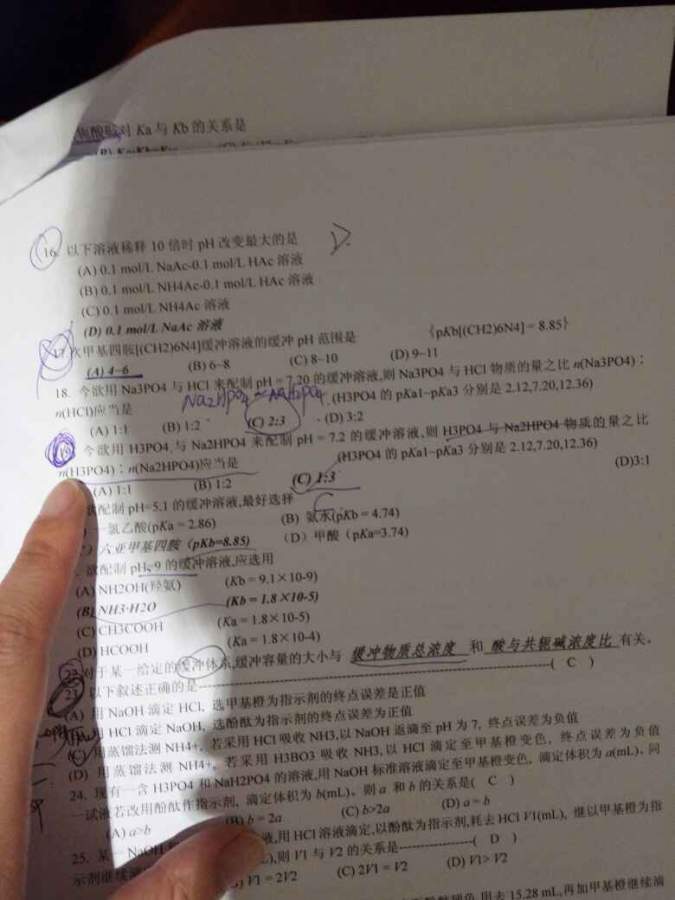 对 Ka 与 Kb 的关系是
16. 以下溶液稀释 10 倍时 pH 改变最大的是 D.
(A) 0.1 mol/L NaAc-0.1 mol/L HAc 溶液
(B) 0.1 mol/L NH4Ac-0.1 mol/L HAc 溶液
(C) 0.1 mol/L NH4Ac 溶液
(D) 0.1 mol/L NaAc 溶液
17. 六甲基四胺[(CH2)6N4]缓冲溶液的缓冲 pH 范围是 {pKb[(CH2)6N4] = 8.85}
(A) 4–6 (B) 6–8 (C) 8–10 (D) 9–11
18. 今欲用 Na3PO4 与 HCl 来配制 pH = 7.20 的缓冲溶液,则 Na3PO4 与 HCl 物质的量之比 n(Na3PO4)：
n(HCl)应当是 Na2HPO4 (H3PO4 的 pKa1~pKa3 分别是 2.12,7.20,12.36)
(A) 1:1 (B) 1:2 (C) 2:3 (D) 3:2
19. 今欲用 H3PO4 与 Na2HPO4 来配制 pH = 7.2 的缓冲溶液,则 H3PO4 与 Na2HPO4 物质的量之比
n(H3PO4)：n(Na2HPO4)应当是 (H3PO4 的 pKa1~pKa3 分别是 2.12,7.20,12.36)
(A) 1:1 (B) 1:2 (C) 1:3 (D)3:1
配制 pH=5.1 的缓冲溶液,最好选择 C
一氯乙酸(pKa = 2.86) (B) 氨水(pKb = 4.74)
六亚甲基四胺（pKb=8.85） (D) 甲酸（pKa=3.74)
欲配制 pH=9 的缓冲溶液,应选用
(A) NH2OH(羟氨) (Kb = 9.1×10-9)
(B) NH3·H2O (Kb = 1.8×10-5)
(C) CH3COOH (Ka = 1.8×10-5)
(D) HCOOH (Ka = 1.8×10-4)
22 对于某一给定的缓冲体系,缓冲容量的大小与 缓冲物质总浓度 和 酸与共轭碱浓度比 有关。
23. 以下叙述正确的是 ( C )
(A) 用 NaOH 滴定 HCl, 选甲基橙为指示剂的终点误差是正值
用 HCl 滴定 NaOH, 选酚酞为指示剂的终点误差为正值
(C) 用蒸馏法测 NH4+, 若采用 HCl 吸收 NH3,以 NaOH 返滴至 pH 为 7, 终点误差为负值
(D) 用蒸馏法测 NH4+, 若采用 H3BO3 吸收 NH3,以 HCl 滴定至甲基橙变色, 终点误差为负值
24. 现有一含 H3PO4 和 NaH2PO4 的溶液,用 NaOH 标准溶液滴定至甲基橙变色, 滴定体积为 a(mL)。同
一试液若改用酚酞作指示剂, 滴定体积为 b(mL)。则 a 和 b 的关系是( C )
(A) a>b (B) b = 2a (C) b>2a (D) a = b
25. 某一 NaOH 液,用 HCl 溶液滴定,以酚酞为指示剂,耗去 HCl V1(mL), 继以甲基橙为指
示剂继续滴 ),则 V1 与 V2 的关系是 ( D )
V1 = 2V2 (C) 2V1 = V2 (D) V1> V2
用去 15.28 mL,再加甲基橙继续滴